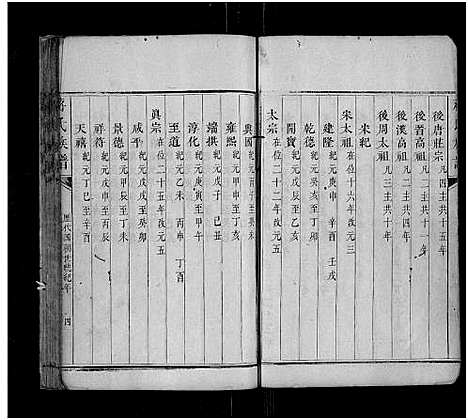 後唐莊宗 凡四主共十五年
後晋高祖 凡二主共十一年
後漢高祖 凡二主共四年
後周太祖 凡三主共十年
宋紀
宋太祖 在位十六年改元三
建隆 紀元庚申 辛酉 壬戌
乾德 紀元癸亥至丁卯
開寶 紀元戊辰至乙亥
太宗 在位二十二年改元五
興國 紀元丙子至癸未
雍熙 紀元甲申至丁亥
端拱 紀元戊子 己丑
淳化 紀元庚寅至甲午
至道 紀元乙未 丙申 丁酉
真宗 在位二十五年改元五
咸平 紀元戊戌至癸卯
景德 紀元甲辰至丁未
祥符 紀元戊申至丙辰
天禧 紀元丁巳至辛酉
氏族譜
四